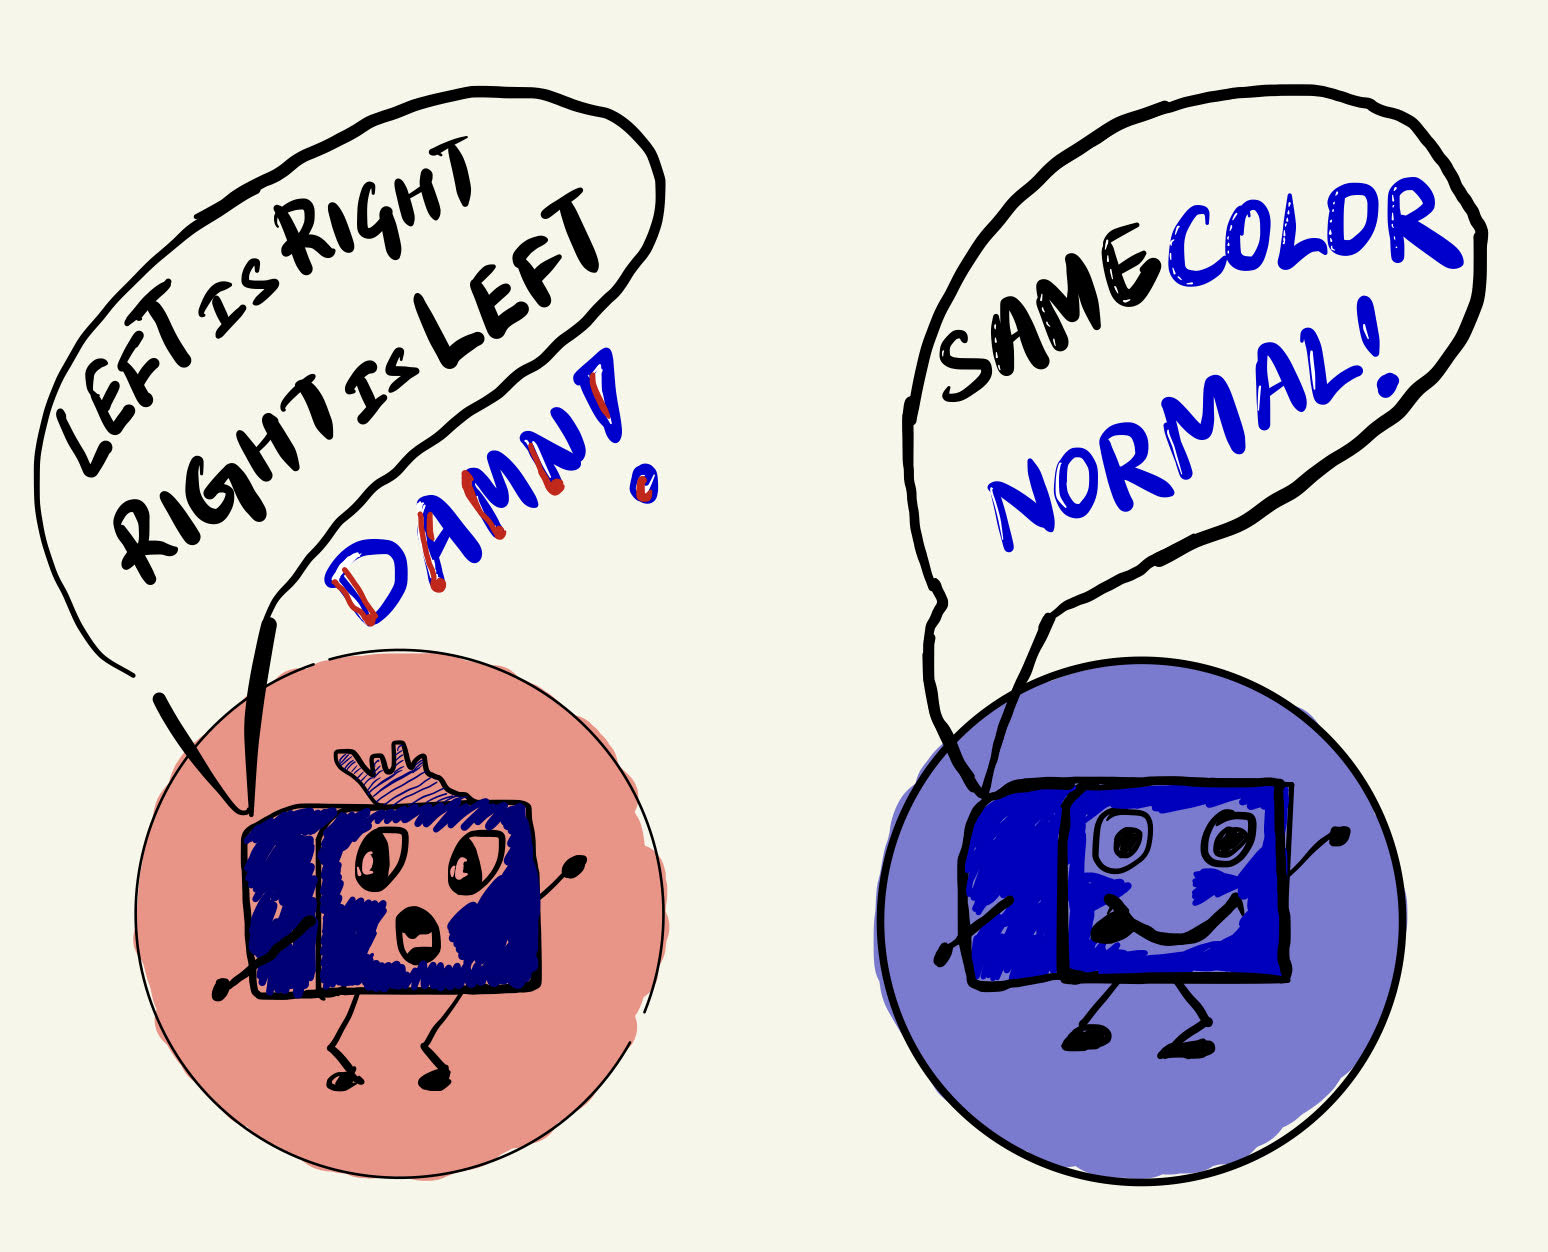 LEFT IS RIGHT
RIGHT IS LEFT
DAMN!
SAME COLOR
NORMAL!